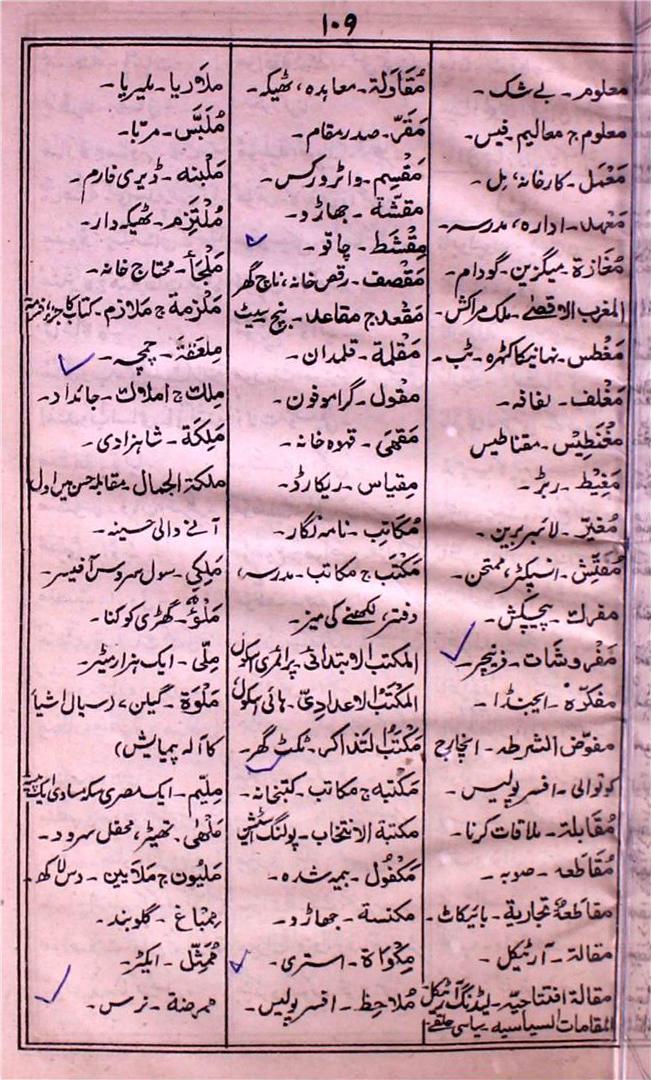 ۱۰۹
معلوم ۔ بے شک ۔
معلوم ج معالیم ۔ فیس ۔
مَعْمَل ۔ کارخانہ، مِل ۔
مَعْہد ۔ ادارہ، مدرسہ ۔
مُغَازَة ۔ میگزین ۔ گودام ۔
المغرب الاقصٰے ۔ ملک مراکش ۔
مَغْطس ۔ نہانیکا کٹہرہ ۔ ٹب ۔
مُغْلف ۔ لفافہ ۔
مُغْنَطِیْس ۔ مقناطیس
مَغِیْط ۔ ربڑ ۔
مُغیّر ۔ لائبریرین ۔
مُفَتِّش ۔ انسپکٹر، ممتحن ۔
مفرك ۔ پیچکش ۔
مَفْروشَات ۔ فرنیچر ۔
مفکرّة ۔ ایجنڈا ۔
مفوّض الشرطہ ۔ انچارج
کوتوالی ۔ افسر پولیس ۔
مُقَابلة ۔ ملاقات کرنا ۔
مُقَاطعہ ۔ صوبہ ۔
مقاطعۂ تجاریة ۔ بائیکاٹ ۔
مقالة ۔ آرٹیکل ۔
مقالة افتتاحیّہ ۔ لیڈنگ آرٹیکل
المقامات السیاسیہ سیاسی حلقے ۔
مُقَاولَة ۔ معاہدہ، ٹھیکہ ۔
مَقَرّ ۔ صدر مقام ۔
مَقْسِم ۔ واٹر ورکس ۔
مقشّة ۔ جھاڑو ۔
مِقْشَط ۔ چاقو ۔
مَقْصف ۔ رقص خانہ، ناچ گھر
مَقْعد ج مقاعد ۔ بنچ سیٹ
مَقْلمة ۔ قلمدان ۔
مقْول ۔ گراموفون ۔
مَقھیٰ ۔ قہوہ خانہ ۔
مِقیاس ۔ ریکارڈ ۔
مُکَاتِب ۔ نامہ نگار ۔
مَکْتَب ج مکاتب ۔ مدرسہ،
دفتر، لکھنے کی میز ۔
المکتب الابتدائی پرائمری اسکول
المکتب الاعدادیّ ۔ ہائی اسکول
مَکْتَبُ التّذاکر ۔ ٹکٹ گھر ۔
مَکْتبہ ج مکاتب ۔ کتبخانہ ۔
مکتبة الانتخاب ۔ پولنگ اسٹیشن
مَکْفُول ۔ بیمہ شدہ ۔
مکنسة ۔ جھاڑو ۔
مِکْوَاة ۔ استری ۔
مُلاحِظ ۔ افسر پولیس ۔
ملَاریا ۔ ملیریا ۔
مُلَبَّس ۔ مربّا ۔
مَلْبنہ ۔ ڈیری فارم ۔
مُلْتَزِم ۔ ٹھیکہ دار ۔
مَلْجَأ ۔ محتاج خانہ ۔
مَلْزمة ج مَلازم ۔ کتاب کا جزء،
مِلعَقَة ۔ چمچہ ۔
مِلك ج املاك ۔ جائداد ۔
مَلِکَة ۔ شاہزادی ۔
ملکة الجمال ۔ مقابلہ حسن میں اول
آنے والی حسینہ ۔
مَلِکِی ۔ سول سروس آفیسر ۔
مَلْؤ ۔ گھڑی کو کنا ۔
مِلّی ۔ ایک ہزار میٹر ۔
مَلْوَة ۔ گیلن (سیال اشیأ
کا آلہ پیمایش)
مِلِّیم ۔ ایک مصری سکہ مساوی ایک
مَلْھٰی ۔ تھیٹر، محفل سرود ۔
مَلیُون ج مَلَایین ۔ دس لاکھ ۔
مِمباغ ۔ گلوبند ۔
مُمَثِّل ۔ ایکٹر ۔
ممرضة ۔ نرس ۔